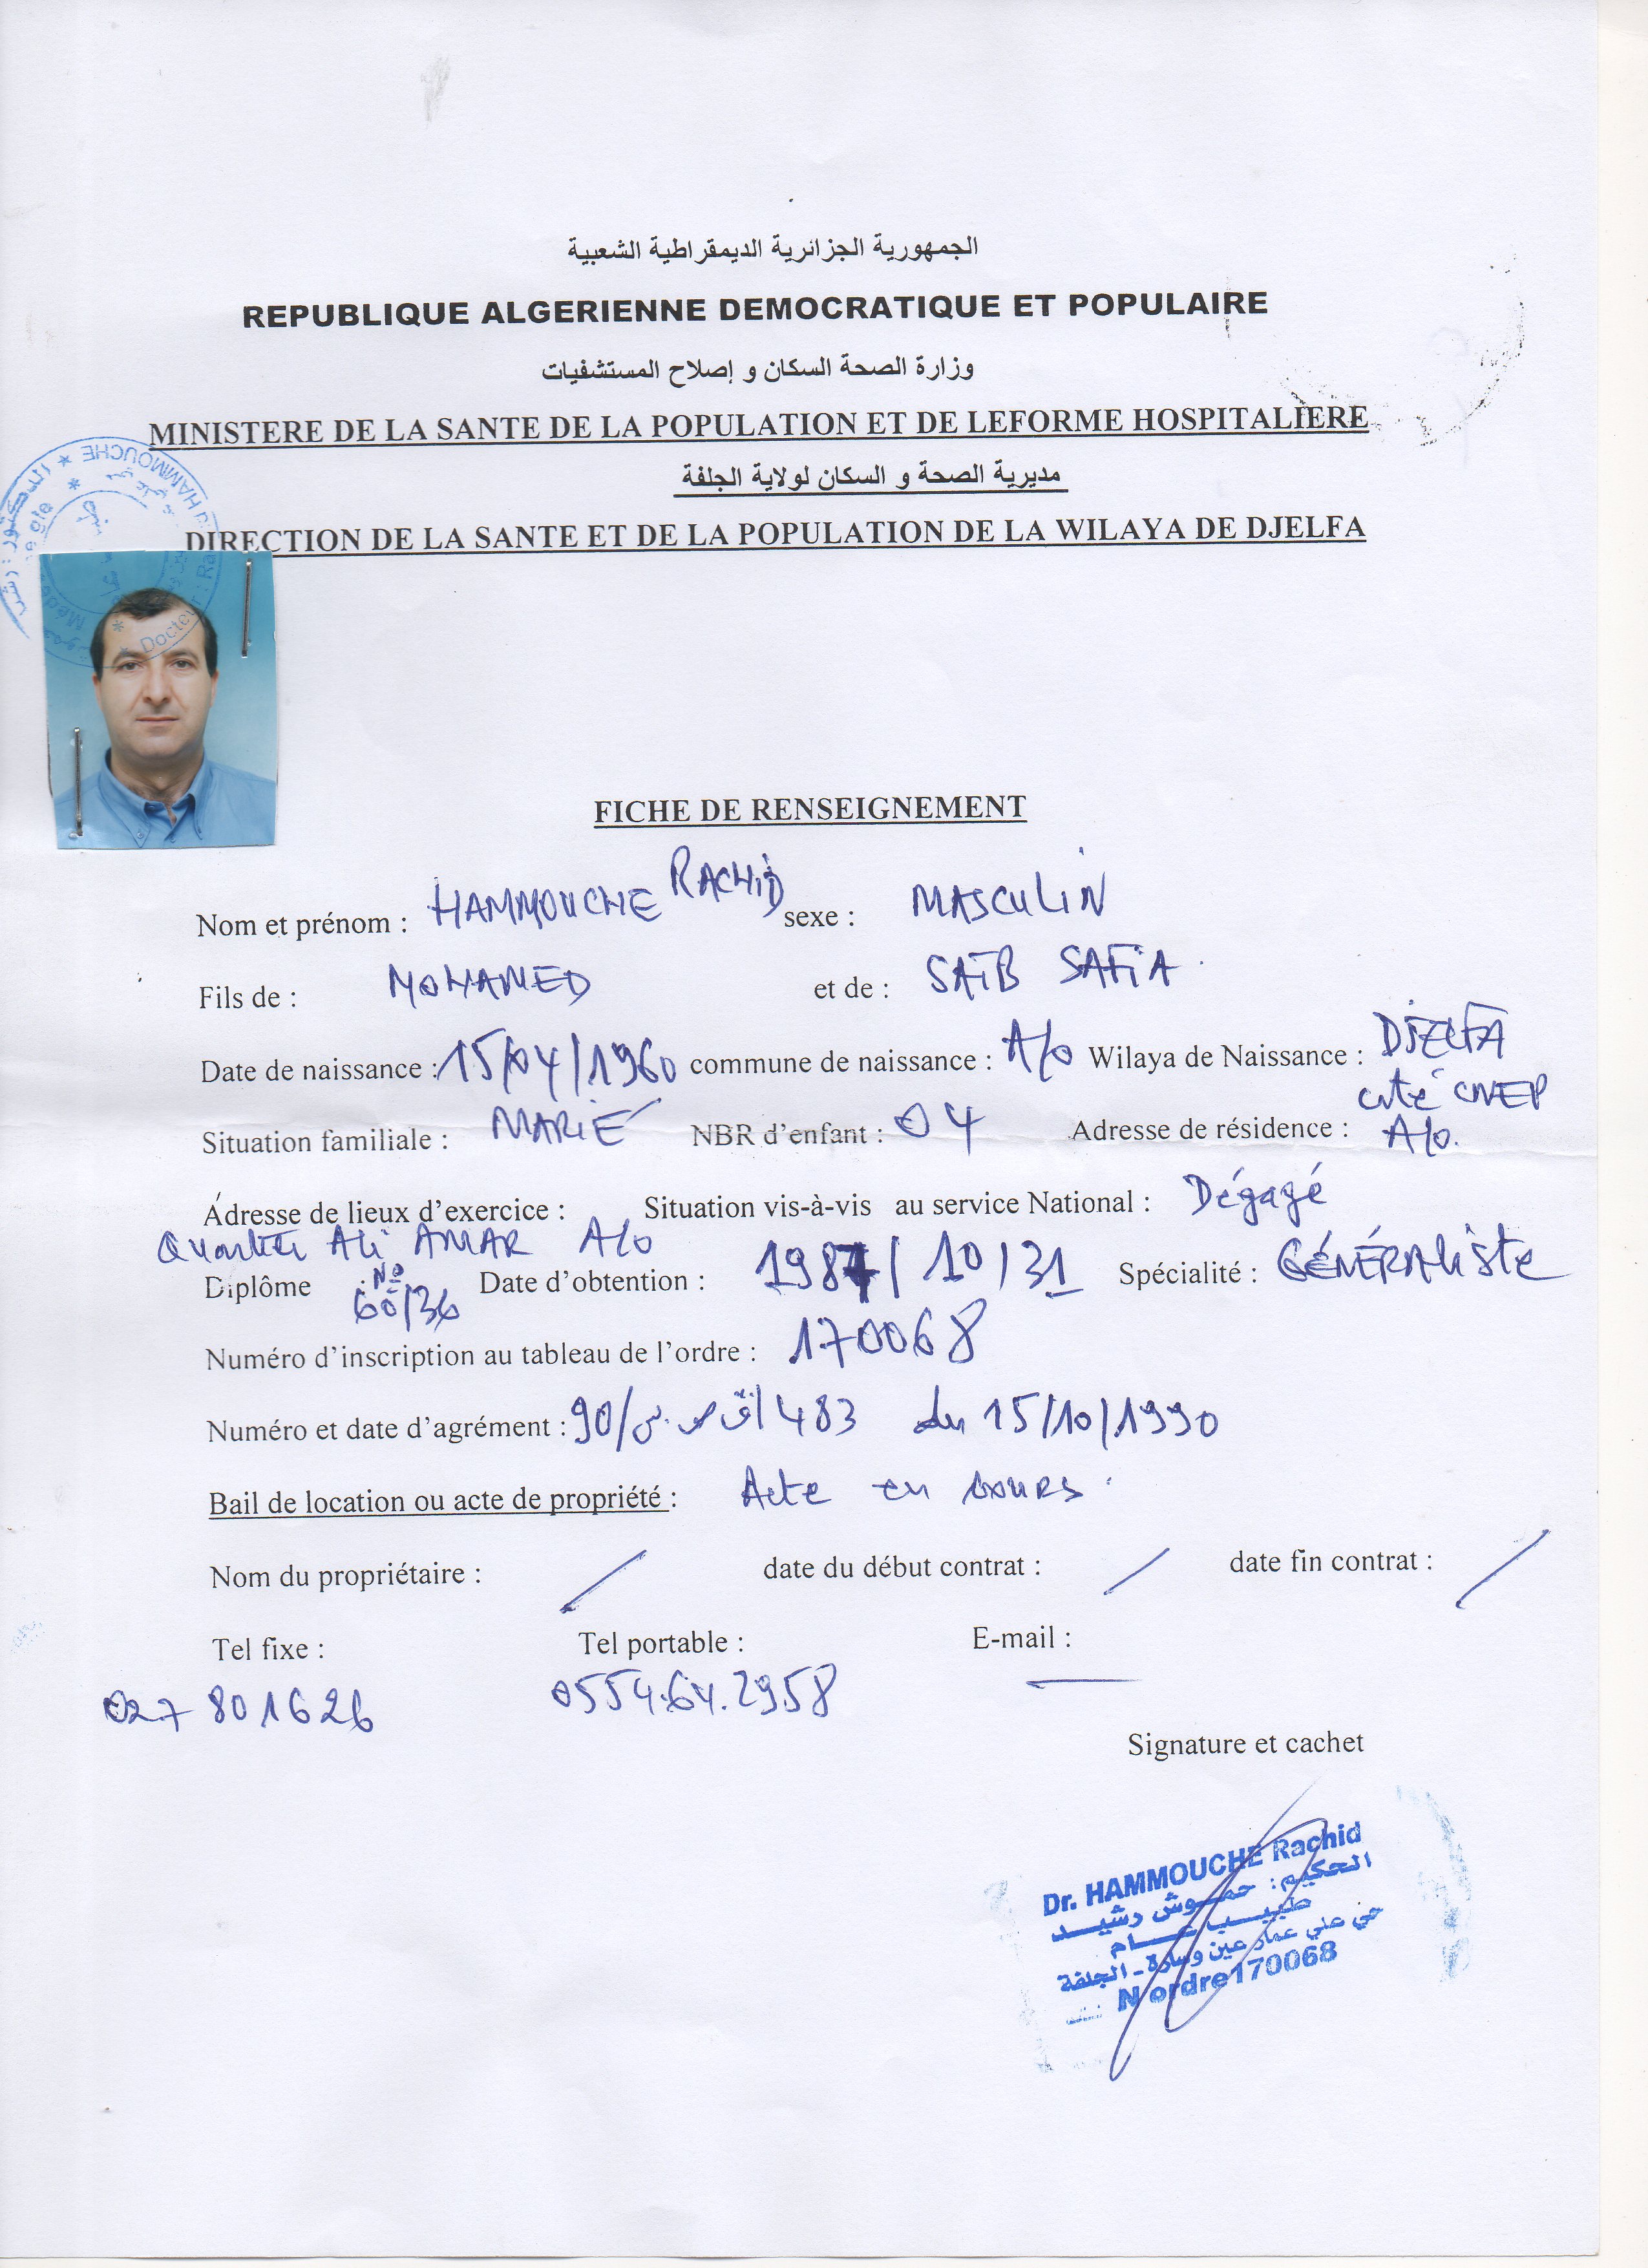 الجمهورية الجزائرية الديمقراطية الشعبية
REPUBLIQUE ALGERIENNE DEMOCRATIQUE ET POPULAIRE
وزارة الصحة السكان و إصلاح المستشفيات
MINISTERE DE LA SANTE DE LA POPULATION ET DE LEFORME HOSPITALIERE
مديرية الصحة و السكان لولاية الجلفة
DIRECTION DE LA SANTE ET DE LA POPULATION DE LA WILAYA DE DJELFA
HAMMOUCHE
Docteur : Ra
FICHE DE RENSEIGNEMENT
Nom et prénom : HAMMOUCHE RACHID sexe : MASCULIN
Fils de : MOHAMED et de : SAÏB SAFIA
Date de naissance : 15/04/1960 commune de naissance : A/o Wilaya de Naissance : DJELFA
Situation familiale : MARIÉ NBR d'enfant : 04 Adresse de résidence : cité CNEP A/o.
Adresse de lieux d'exercice : Situation vis-à-vis au service National : Dégagé
Quartier Ali AMAR A/o
Diplôme : No 60/36 Date d'obtention : 1987/10/31 Spécialité : GÉNÉRAliste
Numéro d'inscription au tableau de l'ordre : 170068
Numéro et date d'agrément : 90/ 483 du 15/10/1990
Bail de location ou acte de propriété : Acte en cours.
Nom du propriétaire : / date du début contrat : / date fin contrat : /
Tel fixe : Tel portable : E-mail :
027 801626 0554.64.2958
Signature et cachet
Dr. HAMMOUCHE Rachid
الحكيم: حموش رشيد
طبيب عام
حي علي عمار عين وسارة - الجلفة
N ordre170068